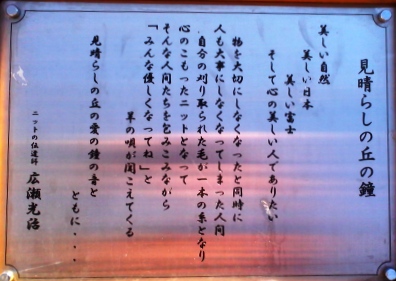 見晴らしの丘の鐘
美しい自然
美しい日本
美しい富士
そして心の美しい人でありたい
物を大切にしなくなったと同時に
人も大事にしなくなってしまった人間
自分の刈り取られた毛が一本の糸となり
心のこもったニットとなって
そんな人間たちを包みこみながら
「みんな優しくなってね」と
羊の唄が聞こえてくる
見晴らしの丘の愛の鐘の音と
ともに・・・・
ニットの伝道師
広瀬光治